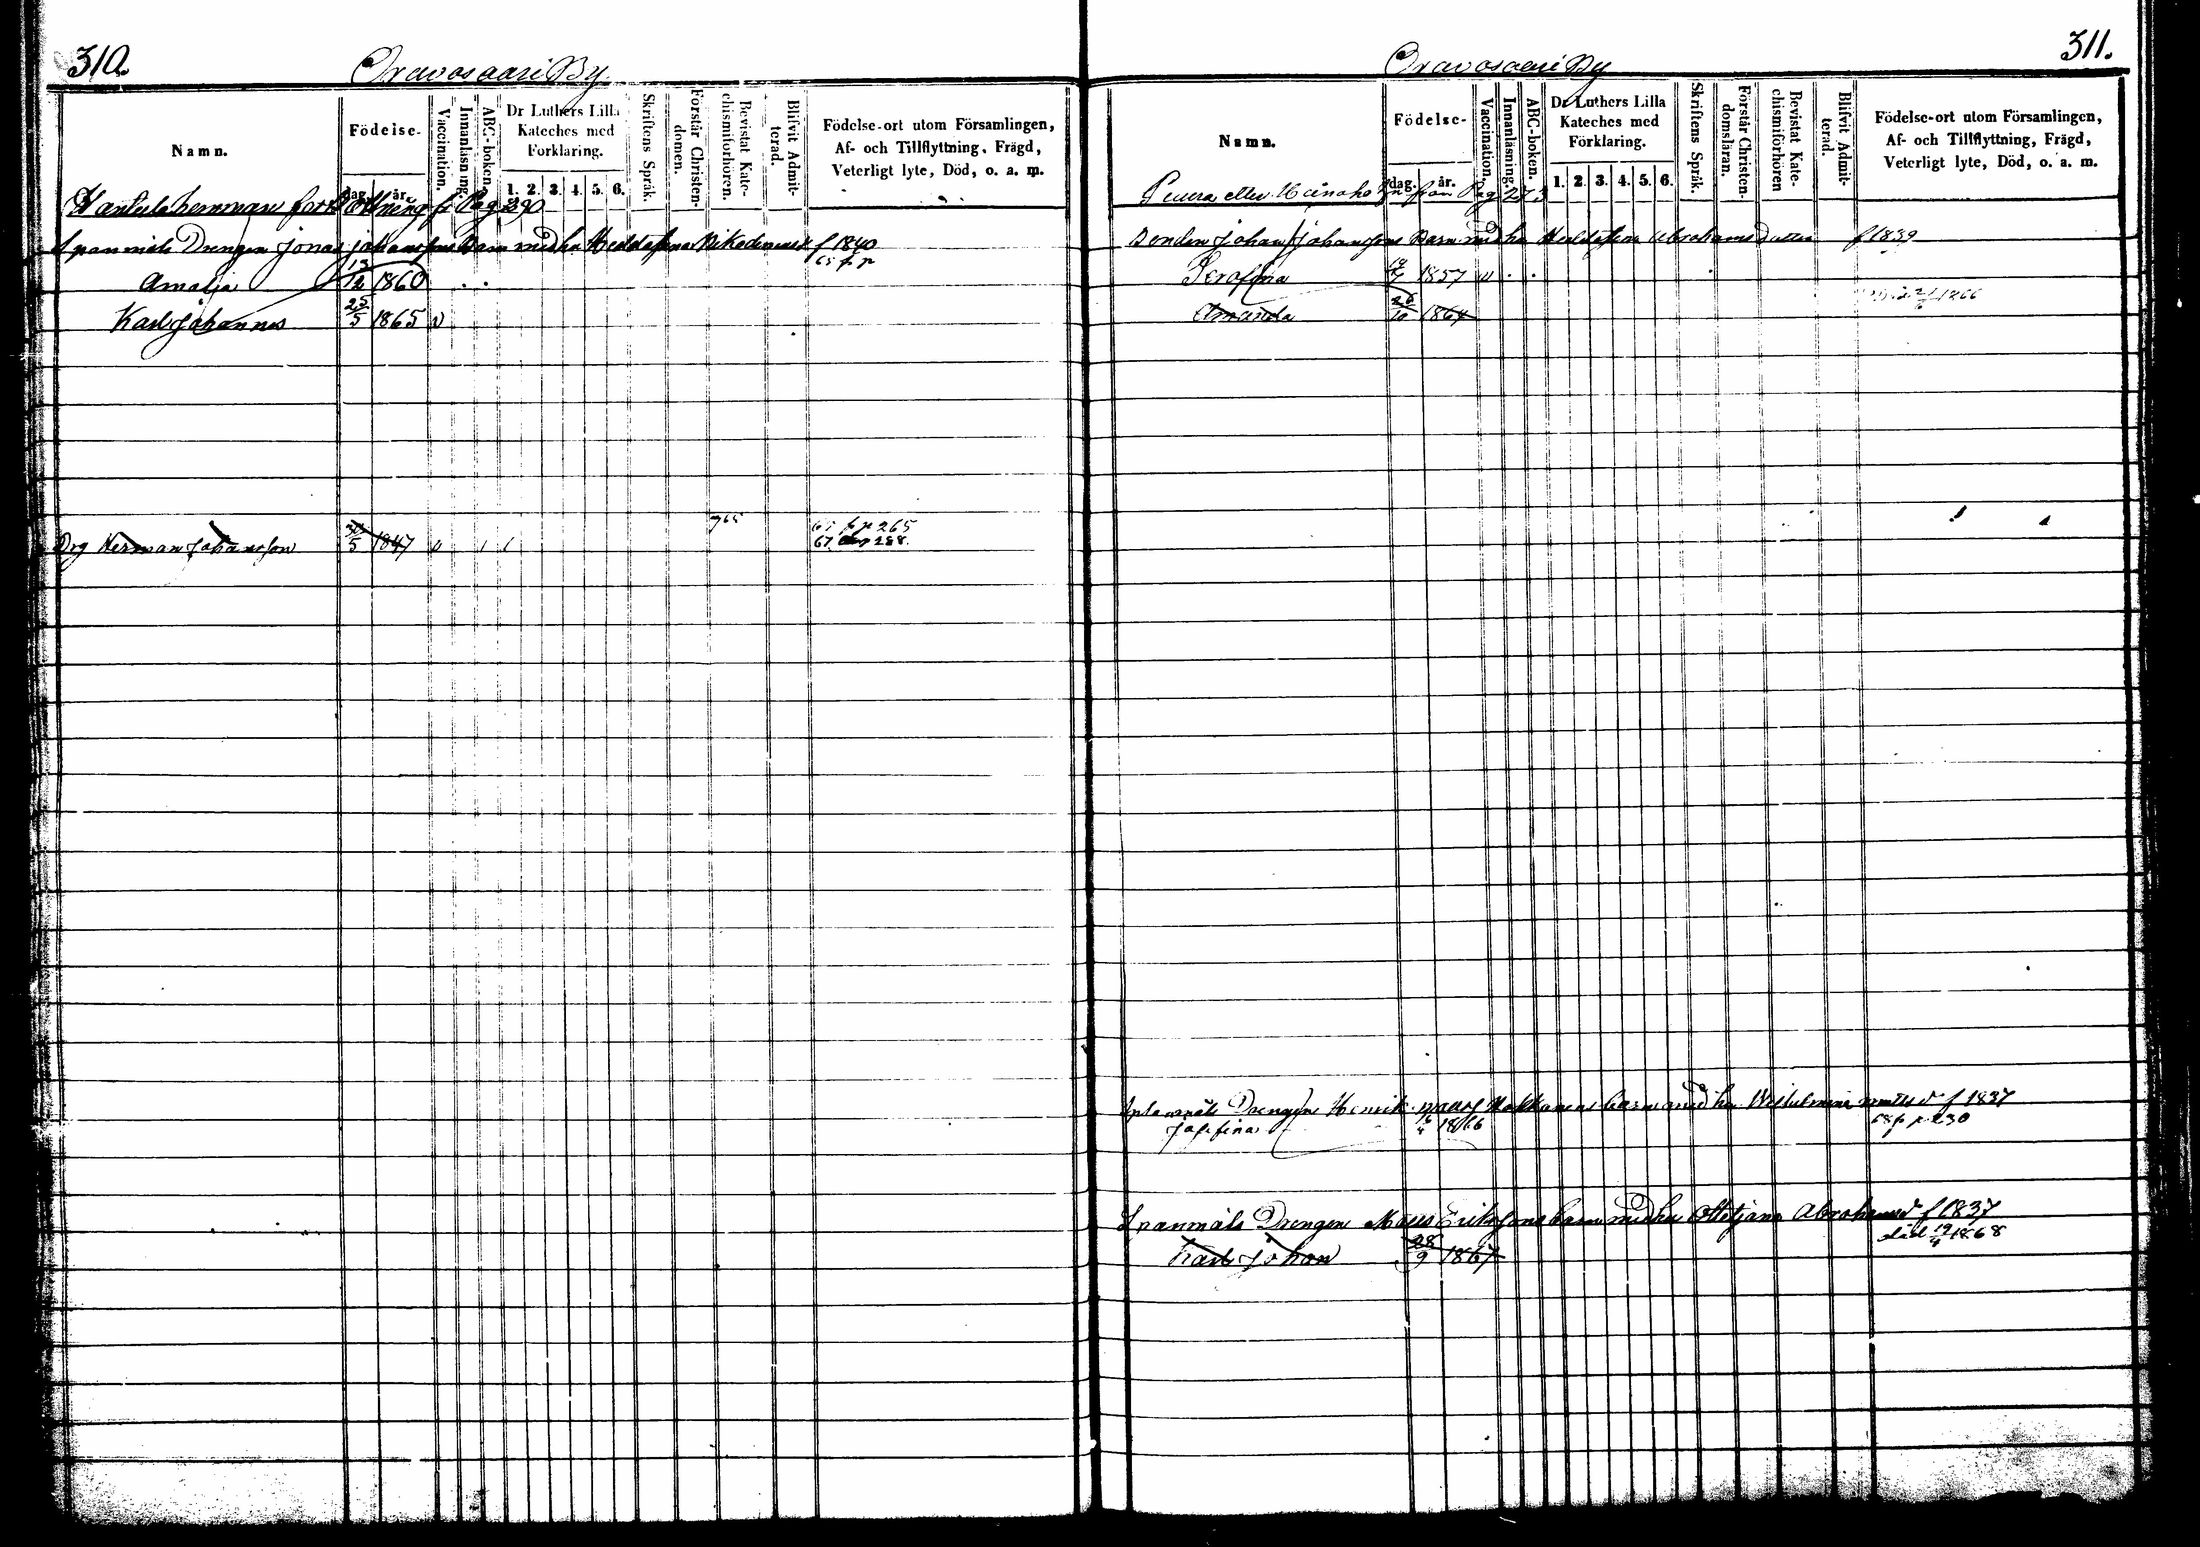 310.
Oravosaari By.
Namn.
Födelse-
dag. år.
Vaccination.
Innanläsning.
ABC-boken.
Dr Luthers Lilla
Kateches med
Förklaring.
1. 2. 3. 4. 5. 6.
Skriftens Språk.
Förstår Christen-
domen.
Bevistat Kate-
chismiförhören.
Blifvit Admit-
terad.
Födelse-ort utom Församlingen,
Af- och Tillflyttning, Frägd,
Veterligt lyte, Död, o. a. m.
hemman fortsättning fr Pag 290
Spanmåls Drengen Jonas Johanssons Barn med hu Hedda Nikodemusd f 1840
Amalja 13/12 1860
Karl Johannes 25/5 1865 v
765
Drg Herman Johansson 5 1847 v
65 fr p 265
67 p 288
311.
Oravosaari By
Namn.
Födelse-
dag. år.
Vaccination.
Innanläsning.
ABC-boken.
Dr Luthers Lilla
Kateches med
Förklaring.
1. 2. 3. 4. 5. 6.
Skriftens Språk.
Förstår Christen-
domsläran.
Bevistat Kate-
chismiförhören
Blifvit Admit-
terad.
Födelse-ort utom Församlingen,
Af- och Tillflyttning, Frägd,
Veterligt lyte, Död, o. a. m.
Peura eller Heinaho från Pag 273
Bonden Johan Johanssons Barn med hu Abrahams Dotter f 1839
Serafina 1857 v
Amanda 26/10 1864
1866
Drengen Henrik Makkonens barn med hu Vilhelmina Mattsd f 1837
Josefina 1866
68 fr p 230
Spanmåls Drengen Mats Erikssons barn med hu Ottiljana Abrahamsd f 1837
Karl Johan 28/9 1867
död 19/4 1868